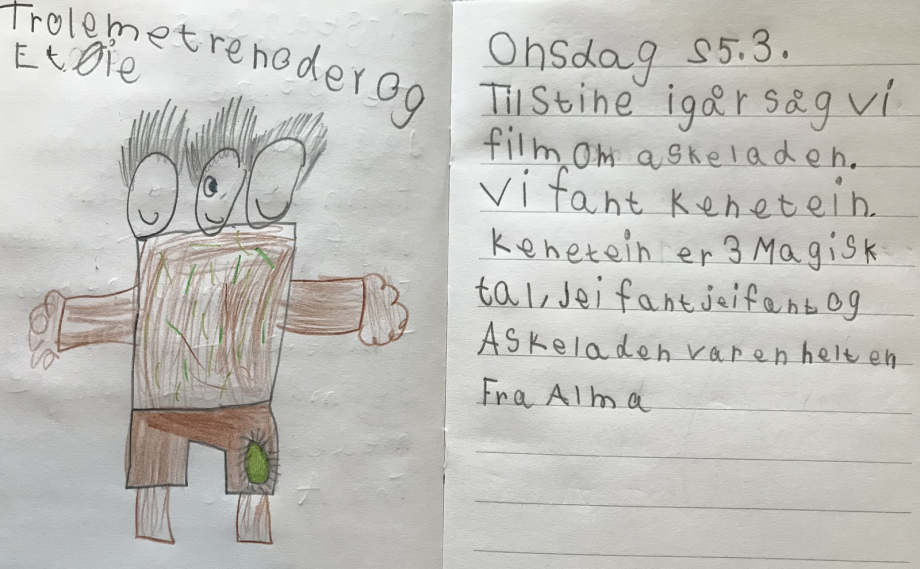 Trolemetrehoderog
Et Øie
Onsdag s5.3.
Til Stine igår såg vi
film om askeladen.
Vi fant kenetein.
kenetein er 3 Magisk
tal, Jei fant jei fant og
Askeladen var en helt en
Fra Alma